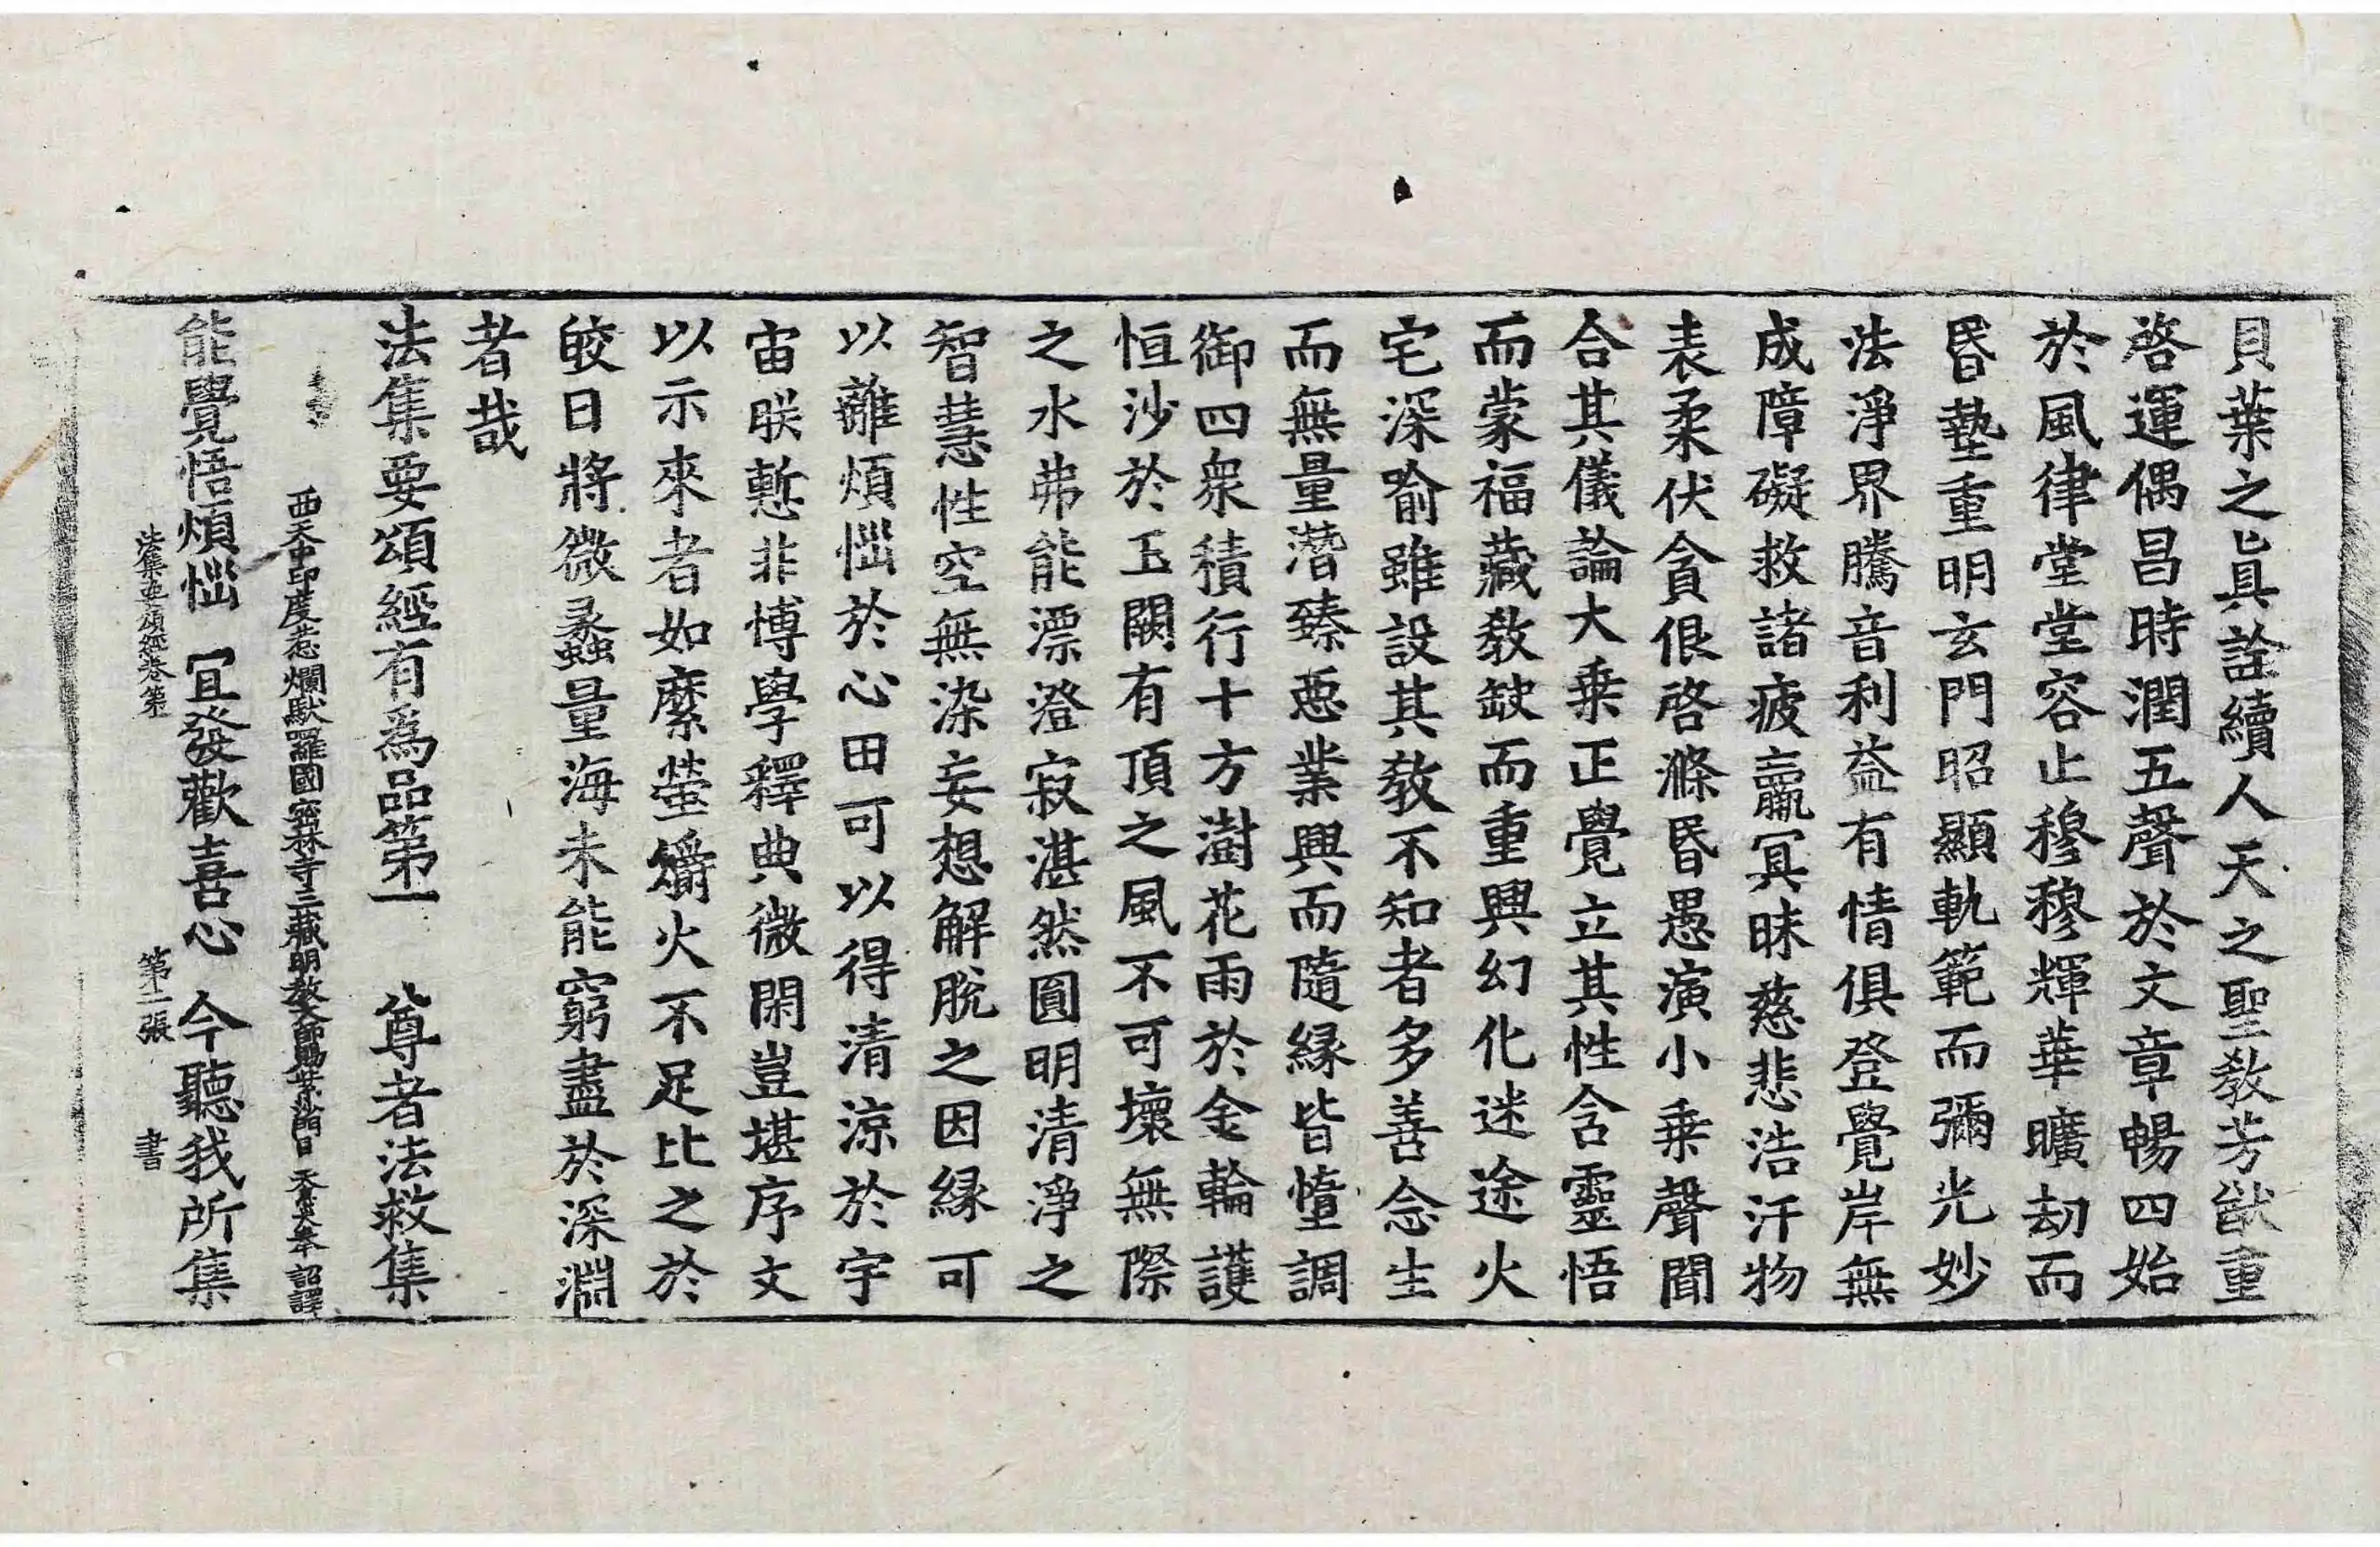 貝葉之眞詮續人天之聖教芳猷重
啓運偶昌時潤五聲於文章暢四始
於風律堂堂容止穆穆輝華曠劫而
昏墊重明玄門昭顯軌範而彌光妙
法淨界騰音利益有情俱登覺岸無
成障礙救諸疲羸冥昧慈悲浩汗物
表柔伏貪佷啓滌昏愚演小乗聲聞
合其儀論大乗正覺立其性含靈悟
而蒙福藏教缺而重興幻化迷途火
宅深喻雖設其教不知者多善念生
而無量潛臻惡業興而隨緣皆憧調
御四衆積行十方澍花雨於金輪護
恒沙於玉闕有頂之風不可壞無際
之水弗能漂澄寂湛然圓明清淨之
智慧性空無染妄想解脫之因緣可
以離煩惱於心田可以得清涼於宇
宙朕慙非博學釋典微閑豈堪序文
以示來者如縻螢爝火不足比之於
皎日將微蠡量海未能窮盡於深淵
者哉
法集要頌經有爲品第一 尊者法救集
西天中印度惹爛馱羅國密林寺三藏明教大師賜紫沙門臣 天息災奉 詔譯
能覺悟煩惱 冝發歡喜心 今聽我所集
法集要頌經卷第一 第二張 書